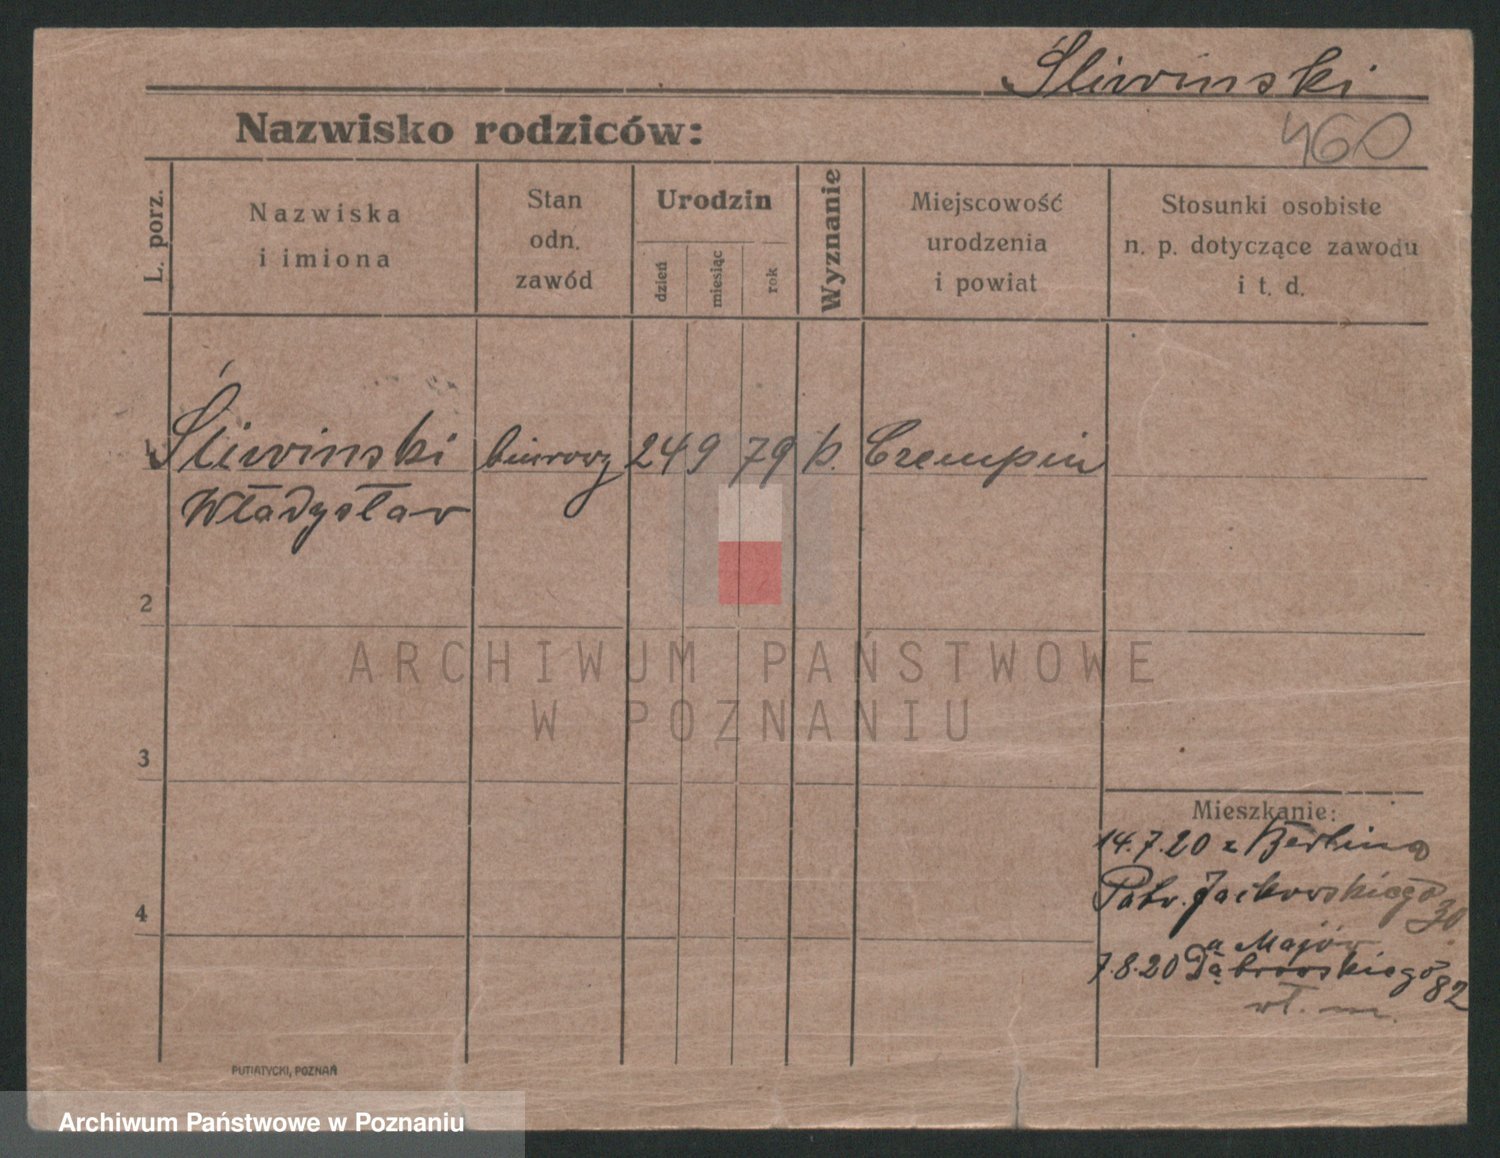 Śliwinski
Nazwisko rodziców:
460
L. porz.
Nazwiska
i imiona
Stan
odn.
zawód
Urodzin
dzień
miesiąc
rok
Wyznanie
Miejscowość
urodzenia
i powiat
Stosunki osobiste
n. p. dotyczące zawodu
i t. d.
1 Śliwinski biurowy 24 9 79 k. Czempin
Władysław
2
3
4
Mieszkanie:
14.7.20 z Berlina
Patr. Jackowskiego 30
u Majów
7.8.20 Dąbrowskiego 82
wł. m.
PUTIATYCKI, POZNAŃ
ARCHIWUM PAŃSTWOWE
W POZNANIU
Archiwum Państwowe w Poznaniu